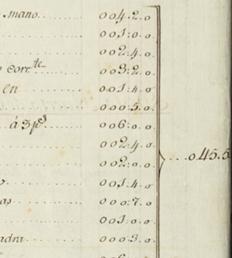 mano......... 004.2.0
......... 001.0.0
......... 002.4.0
corrte......... 003.2.0
en......... 001.4.0
......... 000.5.0
á 3 ps......... 006.0.0
......... 002.4.0
......... 002.0.0 ....045.5
......... 001.4.0
as......... 000.7.0
......... 001.0.0
adra......... 000.3.0